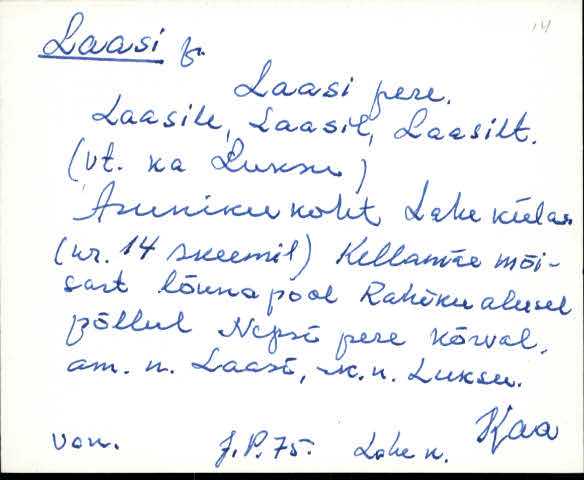 14
Laasi p.
Laasi pere.
Laasile, Laasil, Laasilt.
(vt. ka Luksu)
Asunikukoht Lahe külas
(nr. 14 skeemil) Kellamäe mõi-
sast lõuna pool Rahniku alusel
põllul Nepsi pere kõrval,
am. n. Laasi, r.k.n. Luksu.
Kaa
von. J.P.75. Lahe k.